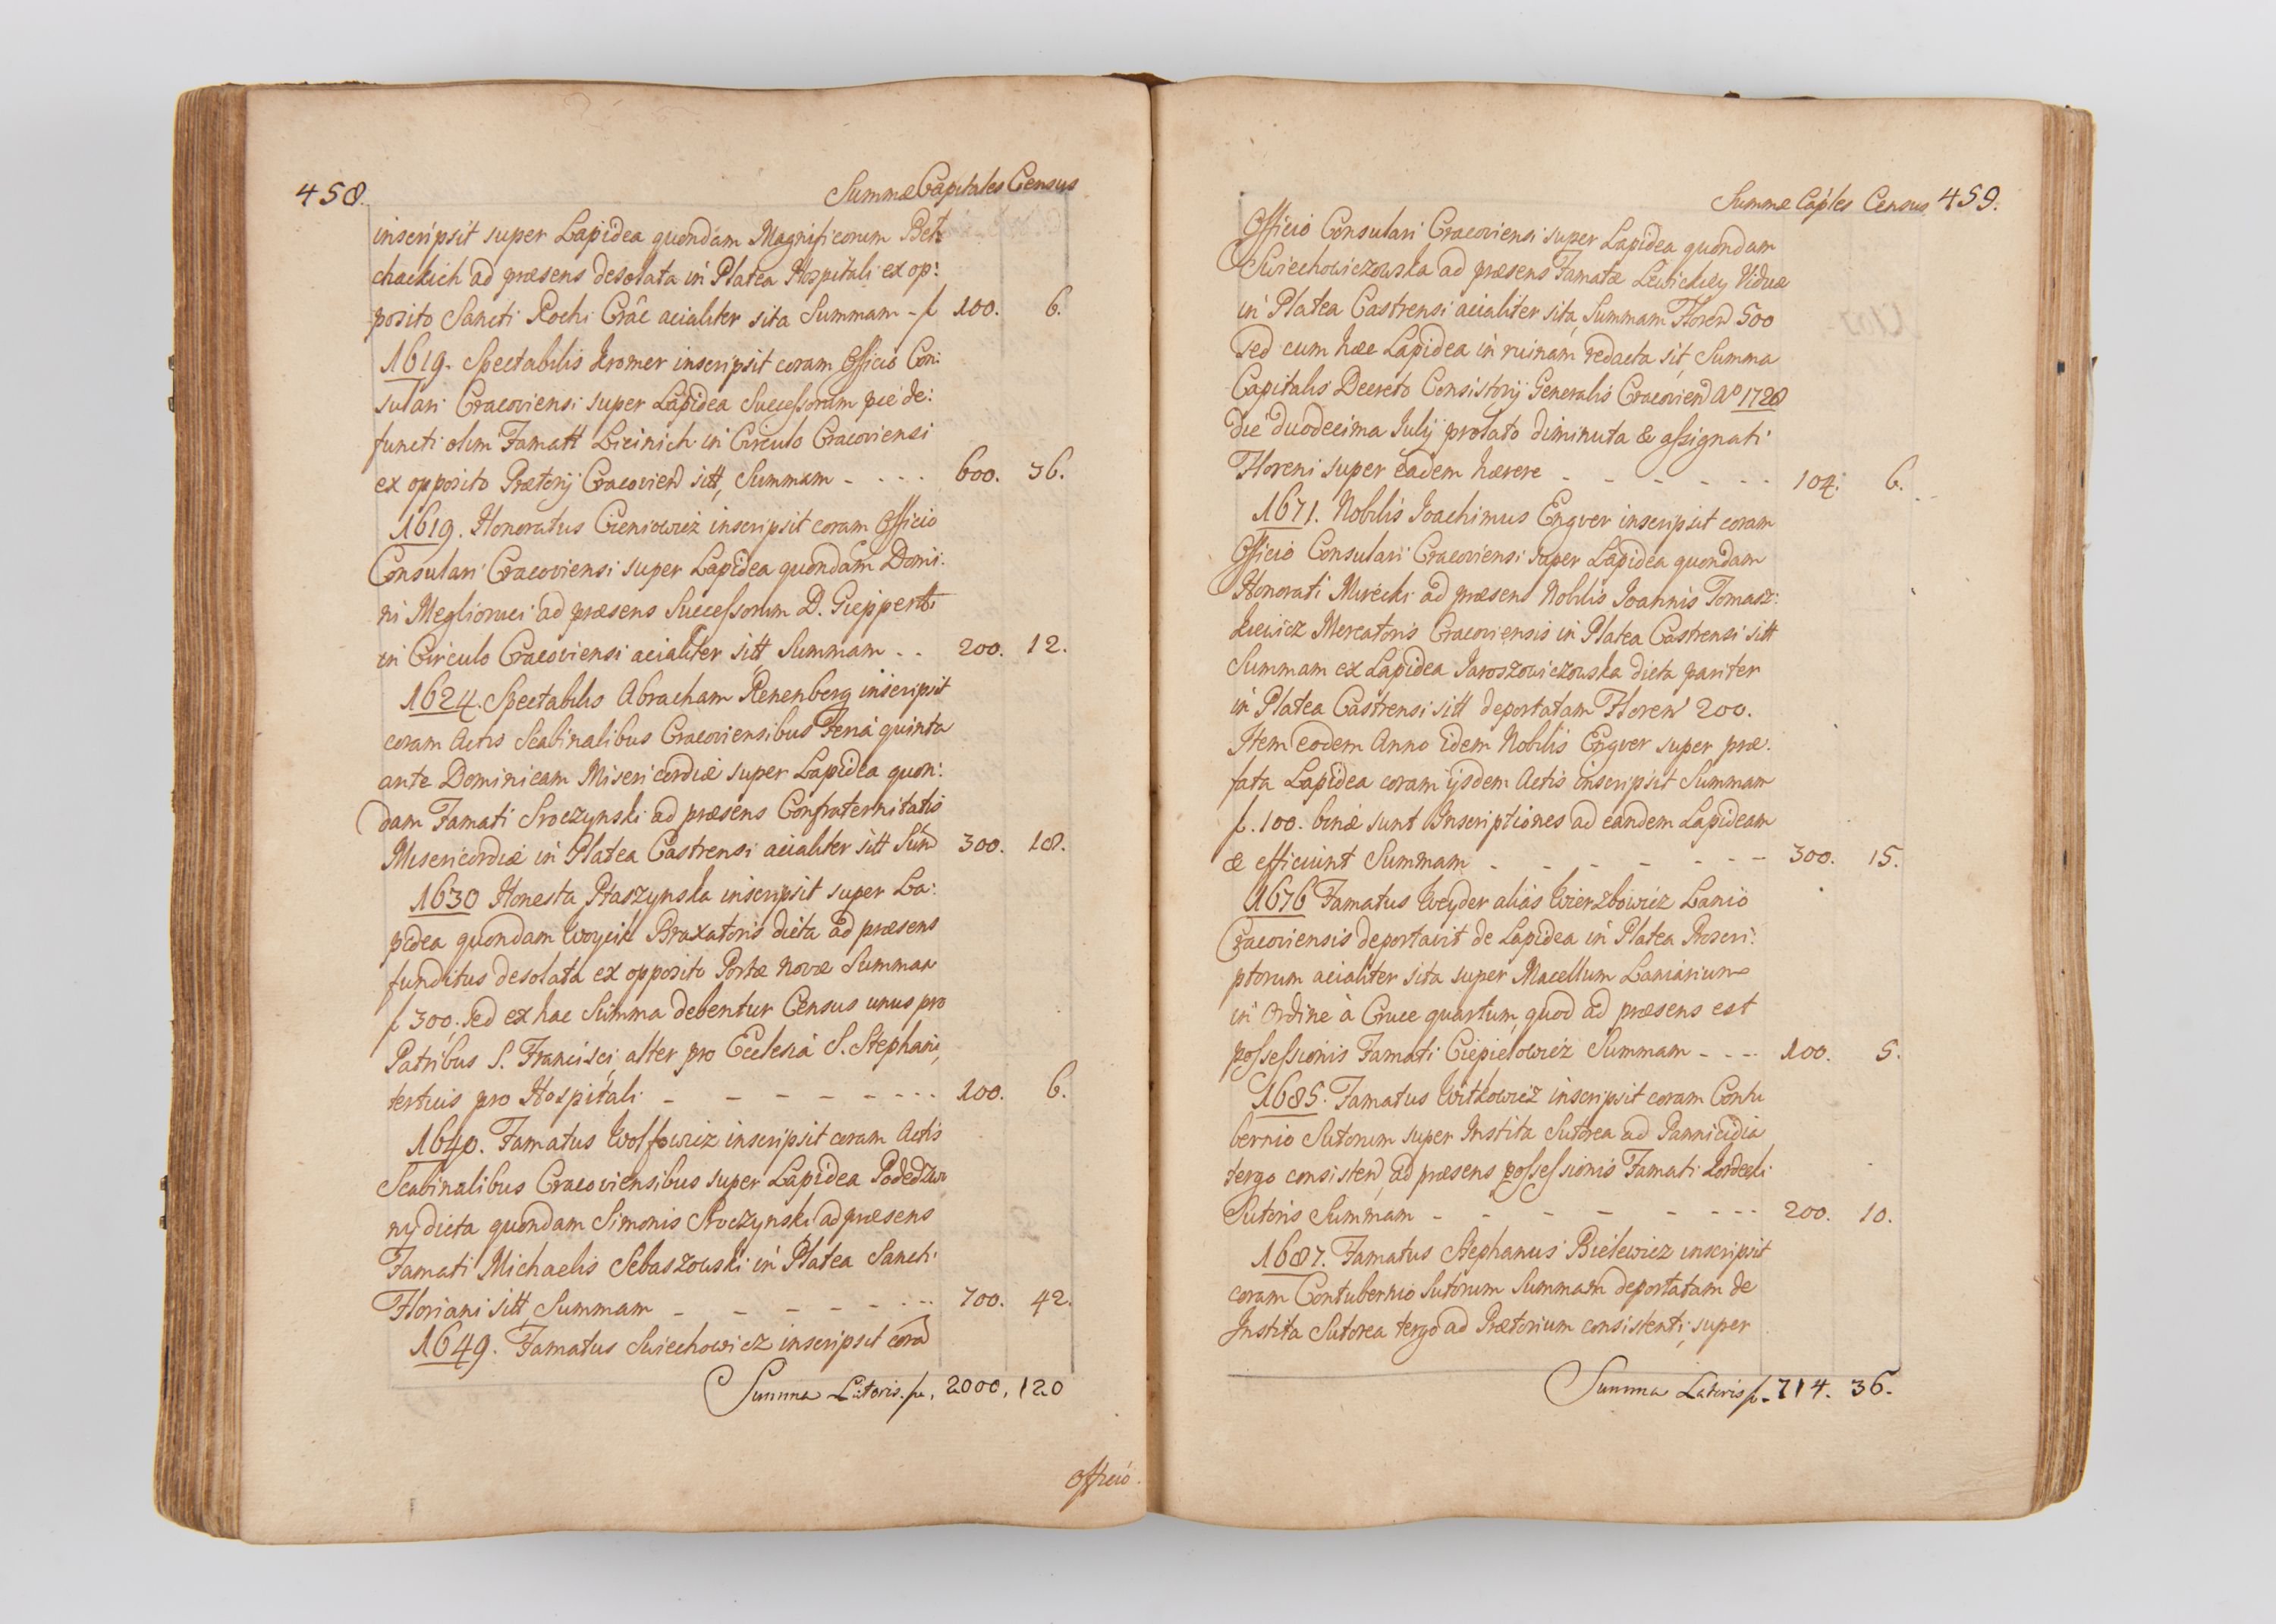 458.
Summæ Capitales Census
inscripsit super Lapidea quondam Magnificorum Beł
chackich ad præsens desolata in Platea Hospitali ex op:
posito Sancti Rochi Crãc acialiter sita Summam - f 100. 6.
1619. Spectabilis Kromer inscripsit coram Officio Con:
sulari Cracoviensi super Lapidea Successorum pie de:
functi olim Famatt Licinich in Circulo Cracoviensi
ex opposito Prætorij Cracovien sitt, Summam - - - - 600. 36.
1619. Honoratus Cieniowicz inscripsit coram Officio
Consulari Cracoviensi super Lapidea quondam Domi:
ni Meglioruci ad præsens Successorum D. Gieppertti
in Circulo Cracoviensi acialiter sitt Summam - - 200. 12.
1624. Spectabilis Abracham Renenberg inscripsit
coram Actis Scabinalibus Cracoviensibus Feria quinta
ante Dominicam Misericordiæ super Lapidea quon:
dam Famati Sroczynski ad præsens Confraternitatis
Misericordiæ in Platea Castrensi acialiter sitt Sum 300. 18.
1630 Honesta Ptaszynska inscripsit super La:
pidea quondam Woycik Braxatoris dicta ad præsens
funditus desolata ex opposito Portæ Novæ Summam
f 300. sed ex hac Summa debentur Census unus pro
Patribus S. Francisci, alter pro Ecclesia S. Stephani,
tertius pro Hospitali - - - - - - - - 100. 6.
1640. Famatus Wolfowicz inscripsit coram Actis
Scabinalibus Cracoviensibus super Lapidea Podedzwo
ny dicta quondam Simonis Sroczynski ad præsens
Famati Michaelis Sebaszowski in Platea Sancti
Floriani sitt, Summam - - - - - - - 700. 42.
1649. Famatus Swiechowicz inscripsit cora
Summa Lateris. f. 2000, 120
Officio.
Summæ Caples Census 459.
Officio Consulari Cracoviensi super Lapidea quondam
Swiechowiczowska ad præsens Famatæ Lewickiey Viduæ
in Platea Castrensi acialiter sita, Summam Floren 500
sed cum hæc Lapidea in ruinam redacta sit, Summa
Capitalis Decreto Consistorij Generalis Cracovien Aº 1728
die duodecima Julij prolato diminuta & assignati
Floreni super eadem hærere - - - - - - - 104. 6.
1671. Nobilis Joachimus Engver inscripsit coram
Officio Consulari Cracoviensi super Lapidea quondam
Honorati Mirecki ad præsens Nobilis Joannis Tomasz:
kiewicz Mercatoris Cracoviensis in Platea Castrensi sitt
Summam ex Lapidea Jaroszowiczowska dicta pariter
in Platea Castrensi sitt deportatam Floren 200.
Item eodem Anno idem Nobilis Engver super præ:
fata Lapidea coram ijsdem Actis inscripsit Summam
f. 100. binæ sunt Inscriptiones ad eandem Lapideam
æ efficiunt Summam - - - - - - - - 300. 15.
1676 Famatus Weyder alias Wierzbowicz Lanio
Cracoviensis deportavit de Lapidea in Platea Proscri:
ptorum acialiter sita super Macellum Laniarium
in Ordine à Cruce quartum, quod ad præsens est
possessionis Famati Ciepielowicz Summam - - - - 100. 5.
1685. Famatus Witkowicz inscripsit coram Contu
bernio Sutorum super Instita Sutorea ad Pannicidia
tergo consisten, ad præsens possessionis Famati Kordecki
Sutoris Summam - - - - - - - - 200. 10.
1687. Famatus Stephanus Bielewicz inscripsit
coram Contubernio Sutorum Summam deportatam de
Instita Sutorea tergo ad Prætorium consistenti, super
Summa Lateris f. 714. 36.